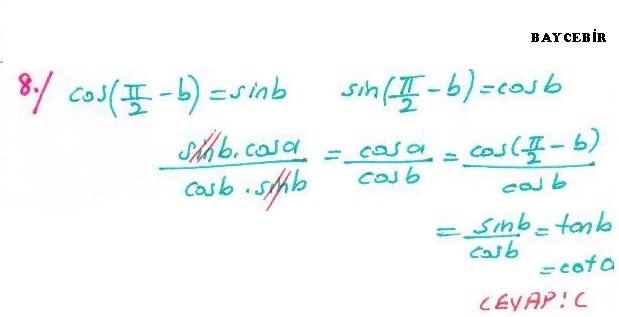 BAYCEBİR
8./ cos(π/2 - b) = sinb sin(π/2 - b) = cosb
sinb.cosa / cosb.sinb = cosa / cosb = cos(π/2 - b) / cosb
= sinb / cosb = tanb
= cota
CEVAP: C